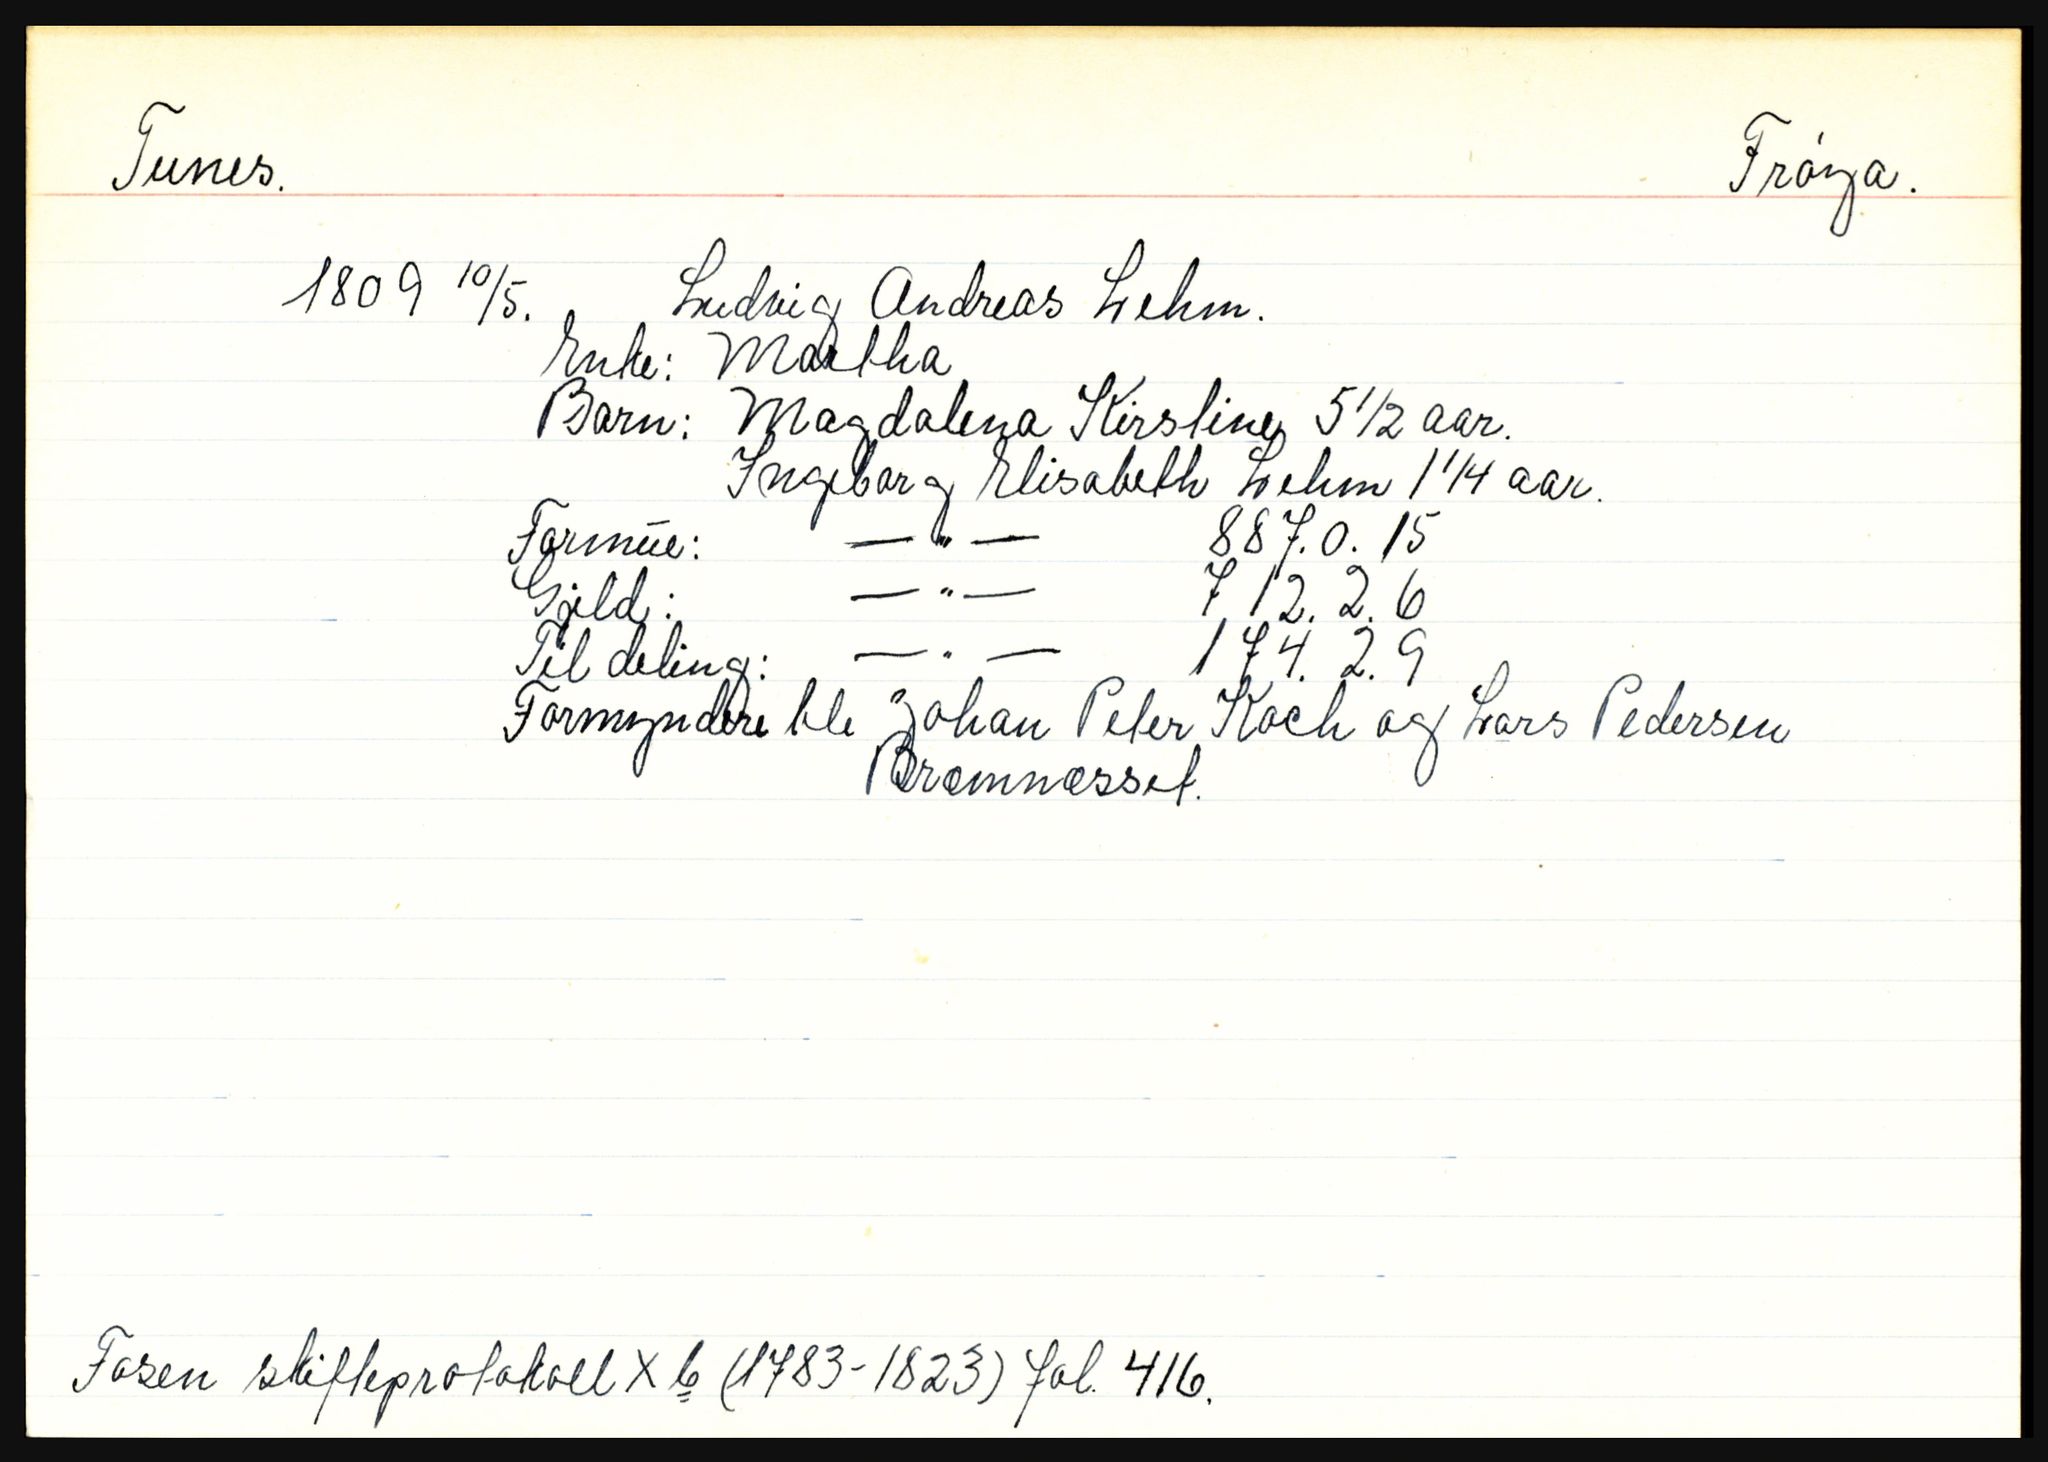 Tunes. Frøya.
1809 10/5. Ludvig Andreas Lehm.
Enke: Martha
Barn: Magdalena Kirstine 5 1/2 aar.
Ingeborg Elisabeth Lehm 1 1/4 aar.
Formüe: — " — 887. 0. 15
Gjæld: — " — 712. 2. 6
Til deling: — " — 174. 2. 9
Formyndere ble Johan Peter Koch og Lars Pedersen
Bræmnæsset.
Fosen skifteprotokoll X b (1783-1823) fol. 416.